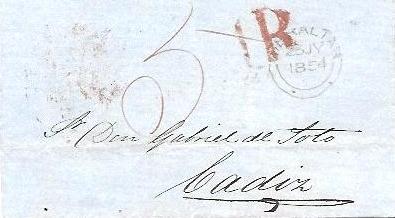 5 R
GIBRALTAR
JY
1854
Sr. Don Gabriel de Soto
Cadiz